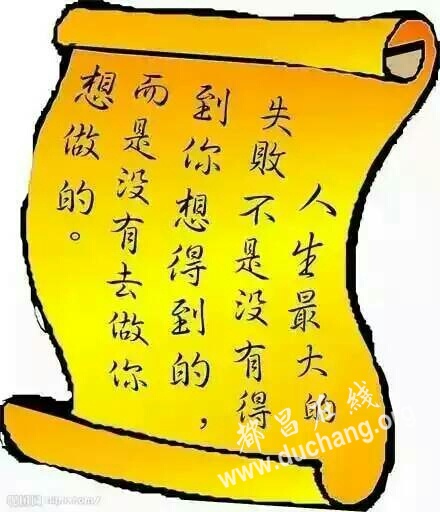 人生最大的
失敗不是没有得
到你想得到的，
而是没有去做你
想做的。
都昌在线
www.duchang.org